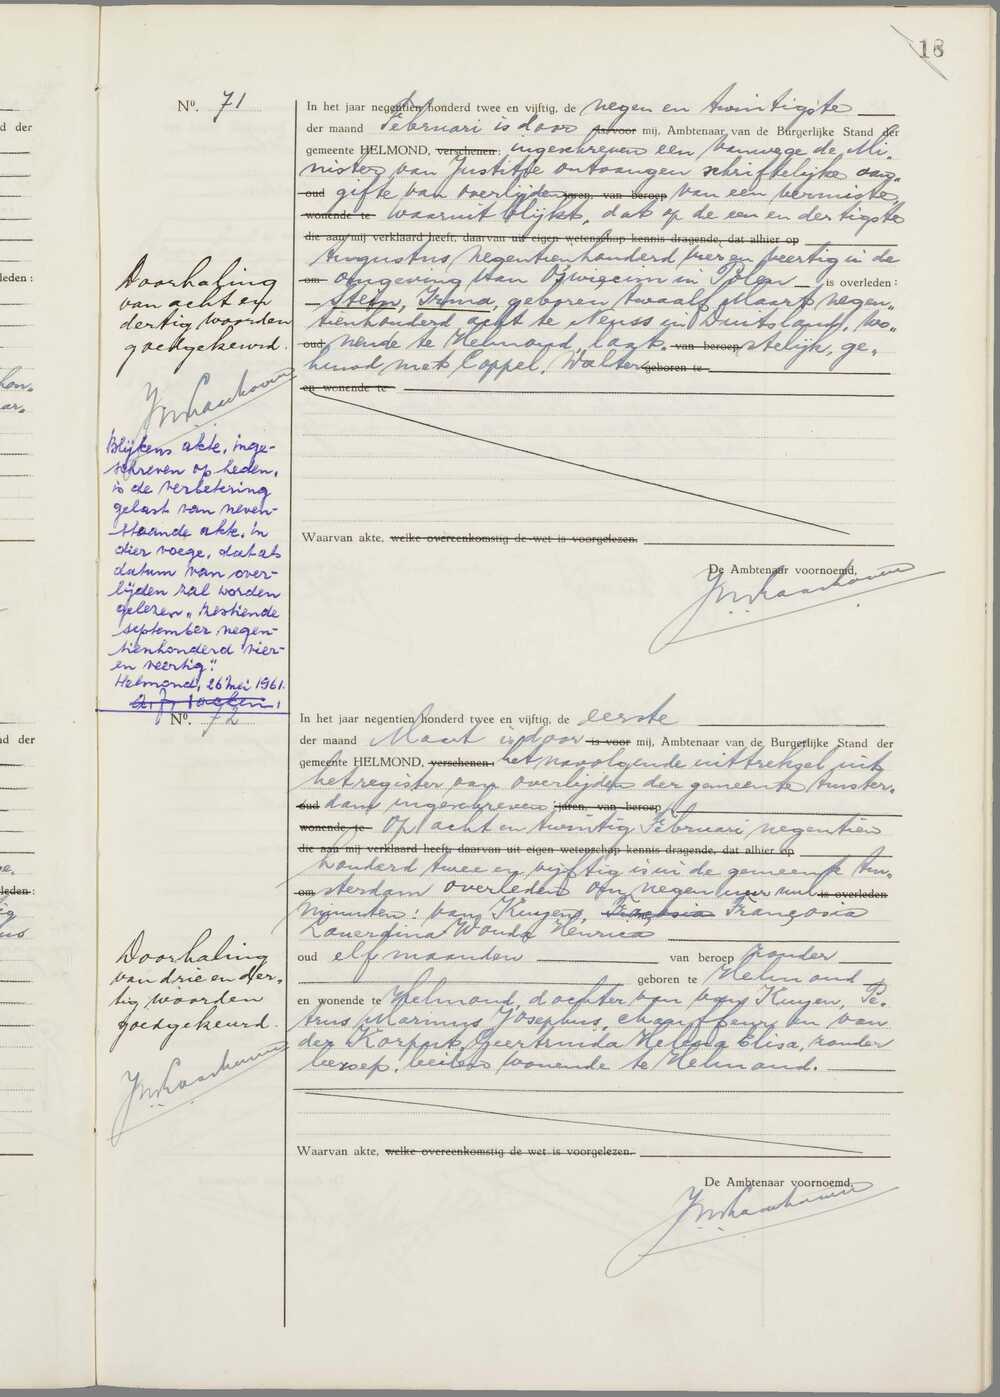 16
d der
leden:
nd der
leden:
Nº. 71
In het jaar negentien honderd twee en vijftig, de negen en twintigste
der maand Februari is door is voor mij, Ambtenaar van de Burgerlijke Stand der
gemeente HELMOND, verschenen: ingeschreven een vanwege de Mi-
nister van Justitie ontvangen schriftelijke aan-
oud gifte van overlijden jaren, van beroep van een vermiste,
wonende te waaruit blijkt, dat op de een en dertigste
die aan mij verklaard heeft, daarvan uit eigen wetenschap kennis dragende, dat alhier op
Augustus negentienhonderd vier en veertig in de
om omgeving van Oswiecim in Polen is overleden:
Stern, Irma, geboren twaalf Maart negen-
tienhonderd acht te Neuss in Duitsland, wo-
oud nende te Helmond, laat- van beroep stelijk, ge-
huwd met Coppel, Walter geboren te
en wonende te
Waarvan akte, welke overeenkomstig de wet is voorgelezen.
De Ambtenaar voornoemd,
Doorhaling
van acht en
dertig woorden
goedgekeurd.
Blijkens akte, inge-
schreven op heden,
is de verbetering
gelast van neven-
staande akte, in
dier voege, dat als
datum van over-
lijden zal worden
gelezen „zestiende
september negen-
tienhonderd vier-
en veertig".
Helmond, 26 Mei 1961.
Nº. 72
In het jaar negentien honderd twee en vijftig, de eerste
der maand Maart is door is voor mij, Ambtenaar van de Burgerlijke Stand der
gemeente HELMOND, verschenen: het navolgende uittreksel uit
het register van overlijden der gemeente Amster-
oud dam ingeschreven: jaren, van beroep
wonende te Op acht en twintig Februari negentien
die aan mij verklaard heeft, daarvan uit eigen wetenschap kennis dragende, dat alhier op
honderd twee en vijftig is in de gemeente Am-
om sterdam overleden om negen uur nul is overleden
minuten: van Kuijen, Françosia
Wouda Henrica
oud elf maanden van beroep zonder
geboren te Helmond
en wonende te Helmond, dochter van van Kuijen, Pe-
trus Marinus Josephus, chauffeur en van
der Korput, Geertruida Helena Elisa, zonder
beroep, beiden wonende te Helmond.
Waarvan akte, welke overeenkomstig de wet is voorgelezen.
De Ambtenaar voornoemd,
Doorhaling
van drie en der-
tig woorden
goedgekeurd.